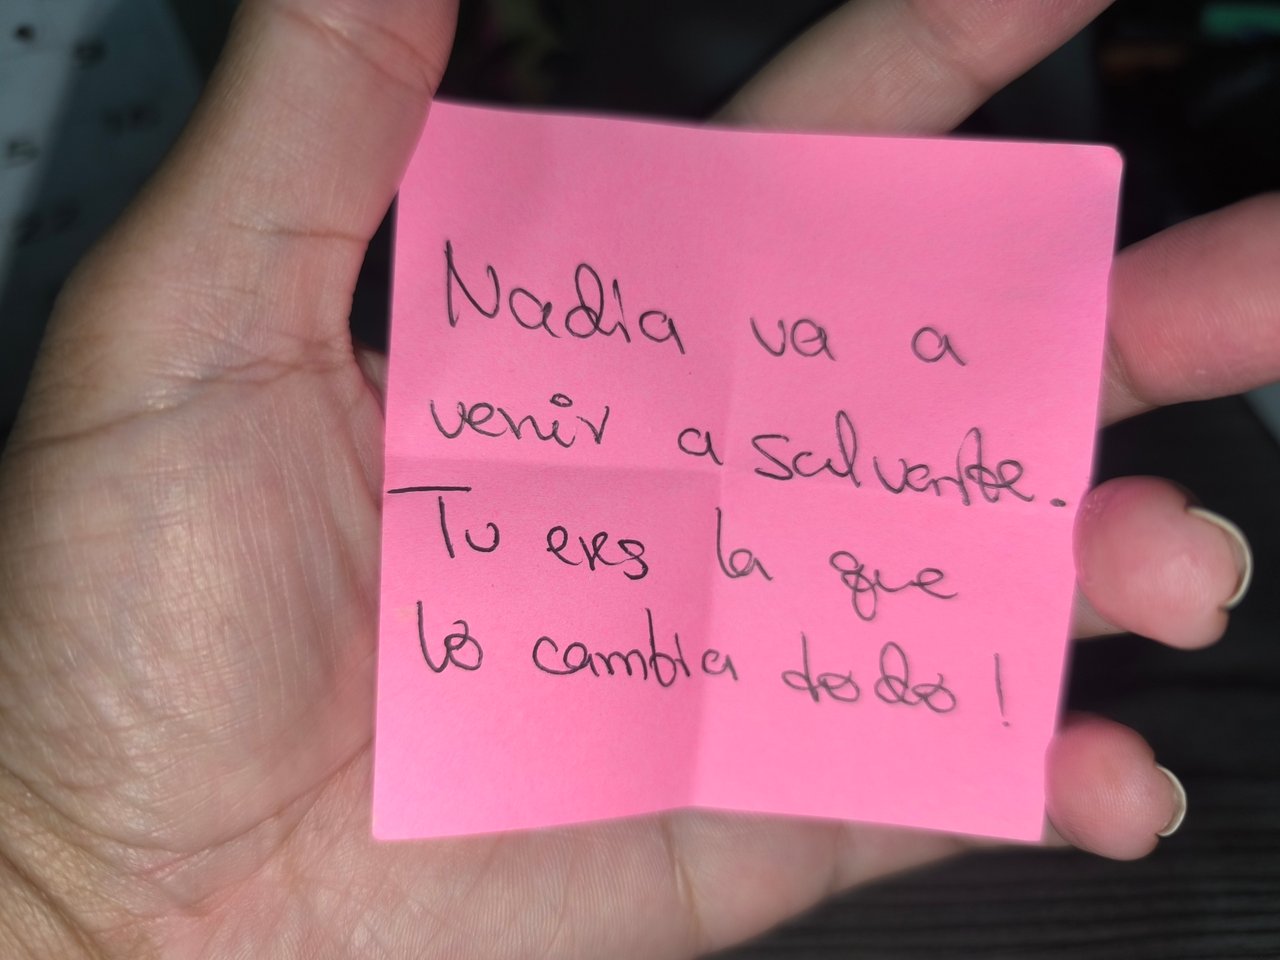 Nadia va a
venir a salvarte.
Tu eres la que
lo cambia todo!